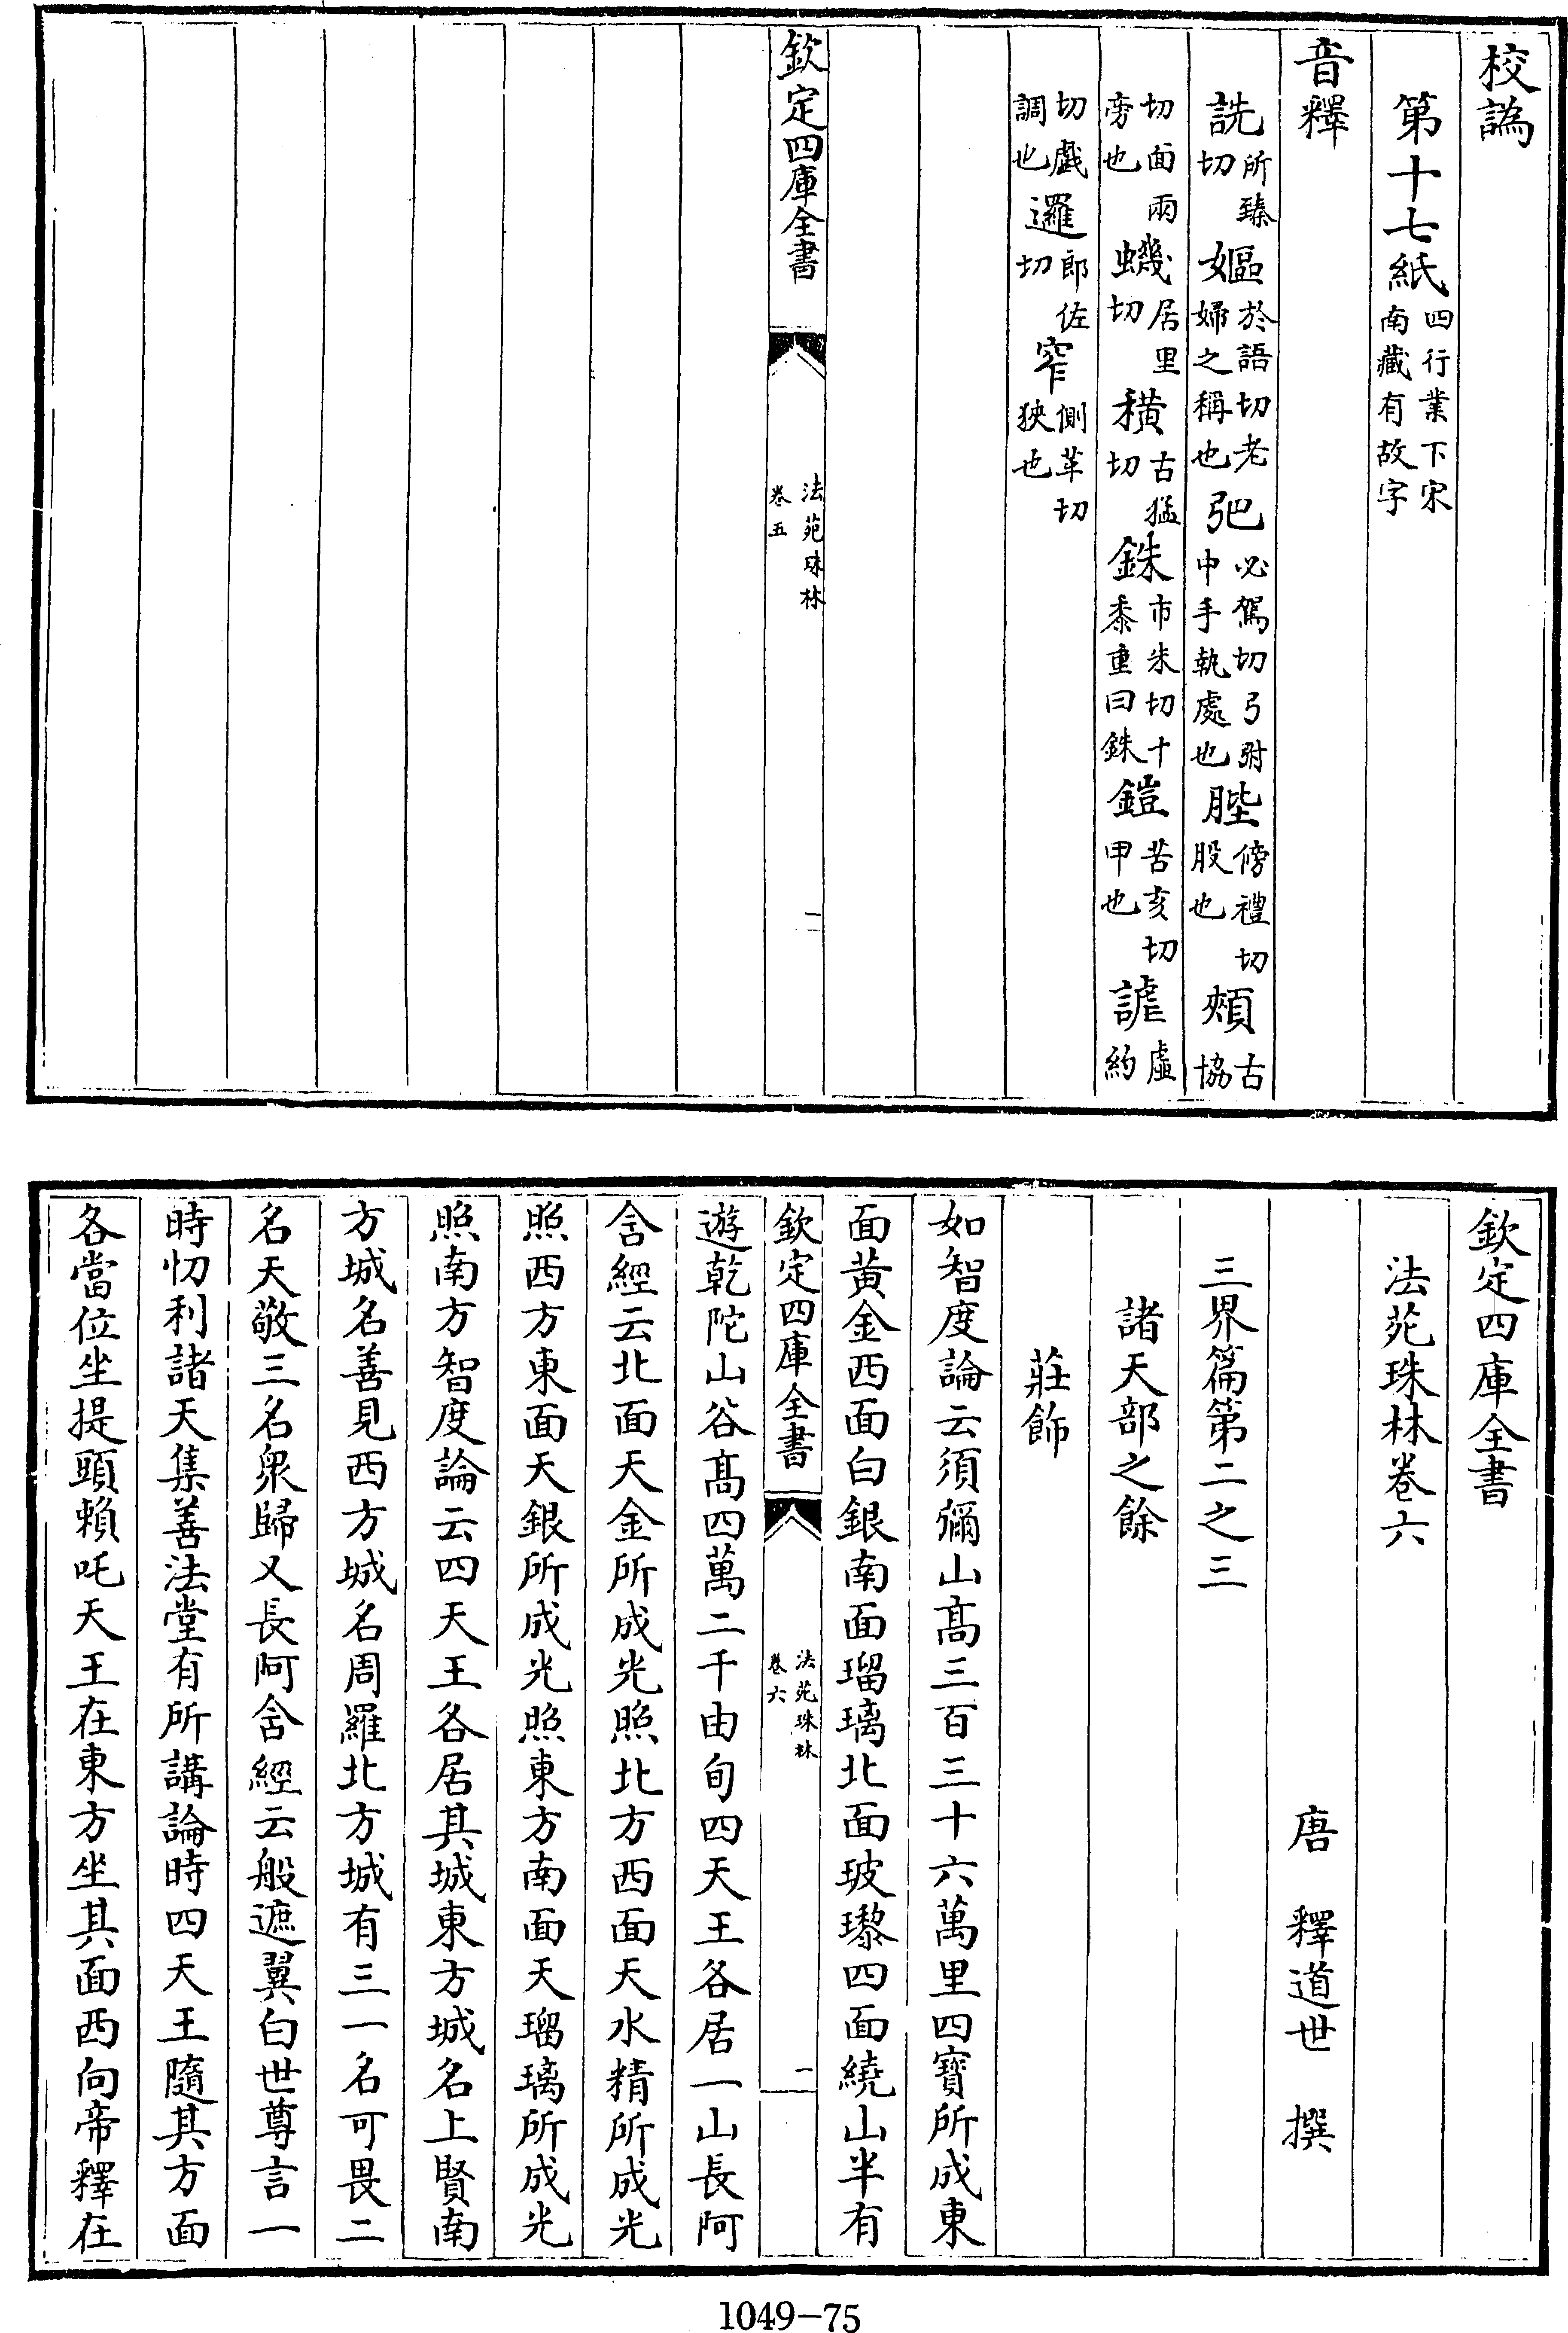 校譌
第十七紙四行業下宋南藏有故字
音釋
詵所臻切嫗於語切老婦之稱也弝必駕切弓弣中手執處也䏶傍禮切股也頰古協
切面兩旁也蟣居里切穬古猛切銖市朱切十黍重曰銖鎧苦亥切甲也謔虛約
切戲調也邏郎佐切窄側革切狹也
欽定四庫全書
法苑珠林
卷五
二
欽定四庫全書
法苑珠林卷六
唐 釋道世 撰
三界篇第二之三
諸天部之餘
莊飾
如智度論云須彌山髙三百三十六萬里四寶所成東
面黄金西面白銀南面瑠璃北面玻瓈四面繞山半有
欽定四庫全書
法苑珠林
卷六
一
遊乾陀山谷髙四萬二千由旬四天王各居一山長阿
含經云北面天金所成光照北方西面天水精所成光
照西方東面天銀所成光照東方南面天瑠璃所成光
照南方智度論云四天王各居其城東方城名上賢南
方城名善見西方城名周羅北方城有三一名可畏二
名天敬三名衆歸又長阿含經云般遮翼白世尊言一
時忉利諸天集善法堂有所講論時四天王隨其方面
各當位坐提頭賴吒天王在東方坐其面西向帝釋在
1049-75